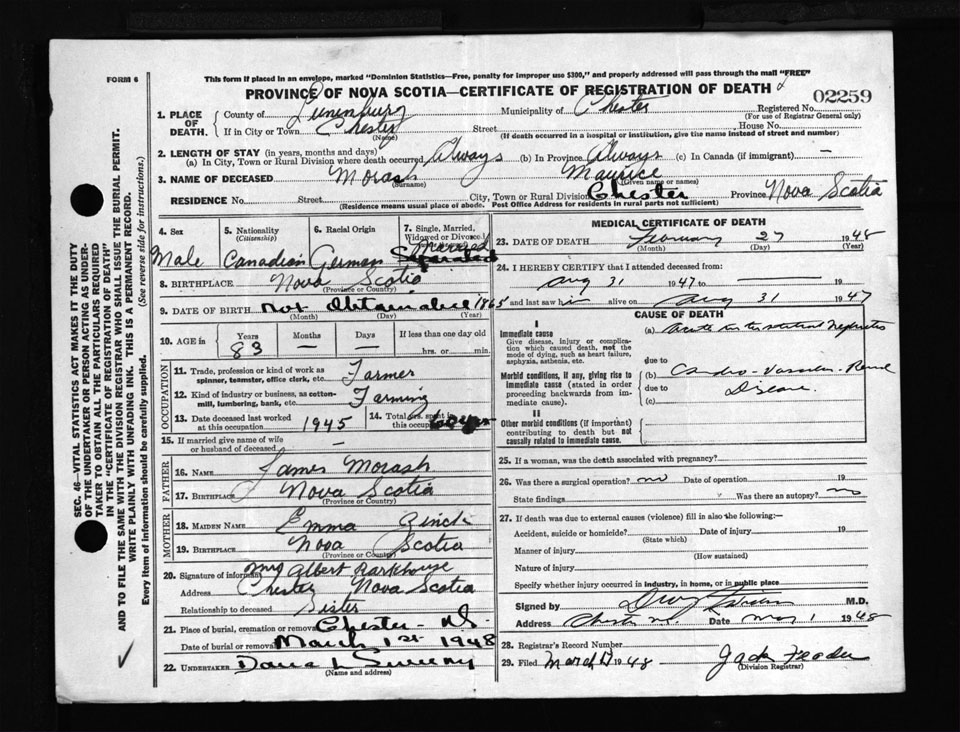 FORM 6
This form if placed in an envelope, marked "Dominion Statistics—Free, penalty for improper use $300," and properly addressed will pass through the mail "FREE"
PROVINCE OF NOVA SCOTIA—CERTIFICATE OF REGISTRATION OF DEATH
02259
1. PLACE OF DEATH. County of Lunenburg Municipality of Chester Registered No.
(For use of Registrar General only)
If in City or Town Chester Street House No.
(Name) (If death occurred in a hospital or institution, give the name instead of street and number)
2. LENGTH OF STAY (in years, months and days)
(a) In City, Town or Rural Division where death occurred Always (b) In Province Always (c) In Canada (if immigrant) —
3. NAME OF DECEASED Morash Maurice
(Surname) (Given name or names)
RESIDENCE No. Street City, Town or Rural Division Chester Province Nova Scotia
(Residence means usual place of abode. Post Office Address for residents in rural parts not sufficient)
SEC. 46—VITAL STATISTICS ACT MAKES IT THE DUTY
OF THE UNDERTAKER OR PERSON ACTING AS UNDER-
TAKER TO OBTAIN ALL THE PARTICULARS REQUIRED
IN THE "CERTIFICATE OF REGISTRATION OF DEATH"
AND TO FILE THE SAME WITH THE DIVISION REGISTRAR WHO SHALL ISSUE THE BURIAL PERMIT.
WRITE PLAINLY WITH UNFADING INK. THIS IS A PERMANENT RECORD.
Every item of information should be carefully supplied. (See reverse side for instructions.)
4. Sex
Male
5. Nationality
(Citizenship)
Canadian
6. Racial Origin
German
7. Single, Married,
Widowed or Divorced
Married
Separated
8. BIRTHPLACE Nova Scotia
(Province or Country)
9. DATE OF BIRTH Not Obtainable 1865
(Month) (Day) (Year)
10. AGE in Years Months Days If less than one day old
83 — — hrs. or min.
OCCUPATION
11. Trade, profession or kind of work as
spinner, teamster, office clerk, etc. Farmer
12. Kind of industry or business, as cotton-
mill, lumbering, bank, etc. Farming
13. Date deceased last worked
at this occupation 1945
14. Total yrs. spent in
this occupation
15. If married give name of wife
or husband of deceased —
FATHER
16. NAME James Morash
17. BIRTHPLACE Nova Scotia
(Province or Country)
MOTHER
18. MAIDEN NAME Emma Zinck
19. BIRTHPLACE Nova Scotia
(Province or Country)
20. Signature of informant Mrs Albert Rarkhouse
Address Chester Nova Scotia
Relationship to deceased Sister
21. Place of burial, cremation or removal Chester - N.S.
Date of burial or removal March 1st 1948
22. UNDERTAKER
(Name and address)
MEDICAL CERTIFICATE OF DEATH
23. DATE OF DEATH February 27 1948
(Month) (Day) (Year)
24. I HEREBY CERTIFY that I attended deceased from
Aug 31 1947 to — 19
and last saw him alive on Aug 31 1947
CAUSE OF DEATH
I
Immediate cause
Give disease, injury or complica-
tion which caused death, not the
mode of dying, such as heart failure,
asphyxia, asthenia, etc.
(a) Acute Interstitial Nephritis
due to
Morbid conditions, if any, giving rise to
immediate cause (stated in order
proceeding backwards from im-
mediate cause).
(b) Cardio-Vascular-Renal
due to Disease
(c)
II
Other morbid conditions (if important)
contributing to death but not
causally related to immediate cause.
25. If a woman, was the death associated with pregnancy?
26. Was there a surgical operation? no Date of operation 19
State findings Was there an autopsy? no
27. If death was due to external causes (violence) fill in also the following:—
Accident, suicide or homicide? Date of injury 19
(State which)
Manner of injury
(How sustained)
Nature of injury
Specify whether injury occurred in industry, in home, or in public place
Signed by M.D.
Address Chester N.S. Date 1 1948
28. Registrar's Record Number
29. Filed March 1948
(Division Registrar)